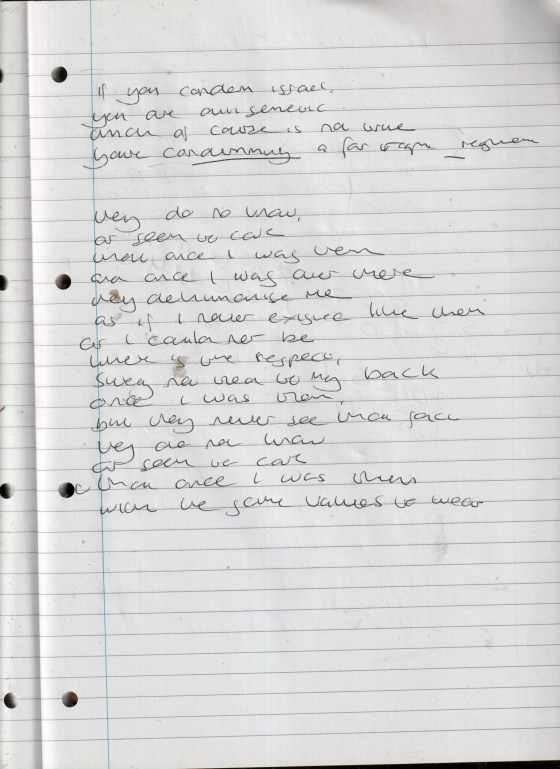 if you condem israel,
you are antisemetic
which of course is not true
your condemming a far right regium
they do no know,
or seem to care
that once I was them
and once I was over there
they dehumanise me
as if I never existed like them
or I could not be
where is the respect,
they no to my back
once I was them,
but they never see that face
they do not know
or seem to care
that once I was them
with the same values to wear